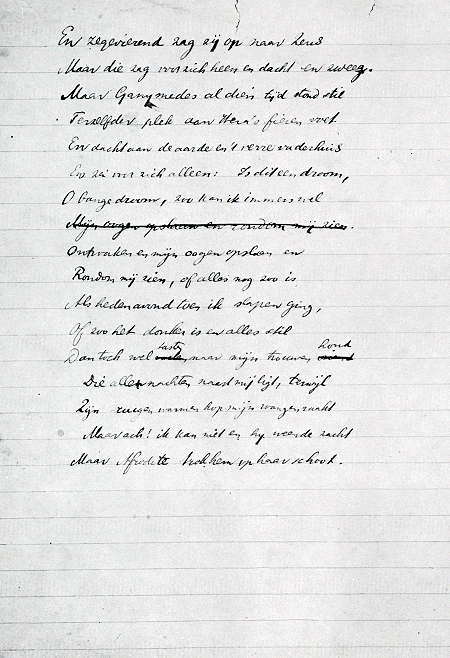 En zegevierend zag zij op naar Zeus
Maar die zag voor zich heen en dacht en zweeg.
Maar Ganymedes al dien tijd stond stil
Terzelfder plek aan Hera's fieren voet
En dacht aan de aarde en 't verre vaderhuis
En zei voor zich alleen: Is dit een droom,
O bange droom, zoo kan ik immers wel
Mijn oogen opslaan en rondom mij zien.
Ontwaken en mijn oogen opslaan en
Rondom mij zien, of alles nog zoo is
Als hedenavond toen ik slapen ging,
Of zoo het donker is en alles stil
Dan toch wel tasten naar mijn trouwen hond
Die alle nachten naast mij ligt, terwijl
Zijn ruwen warmen kop mijn wangen raakt
Maar ach! ik kan niet en hy weende zacht
Maar Afrodite trok hem op haar schoot.